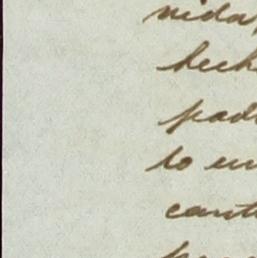 nida,
hech
pad
to un
cant